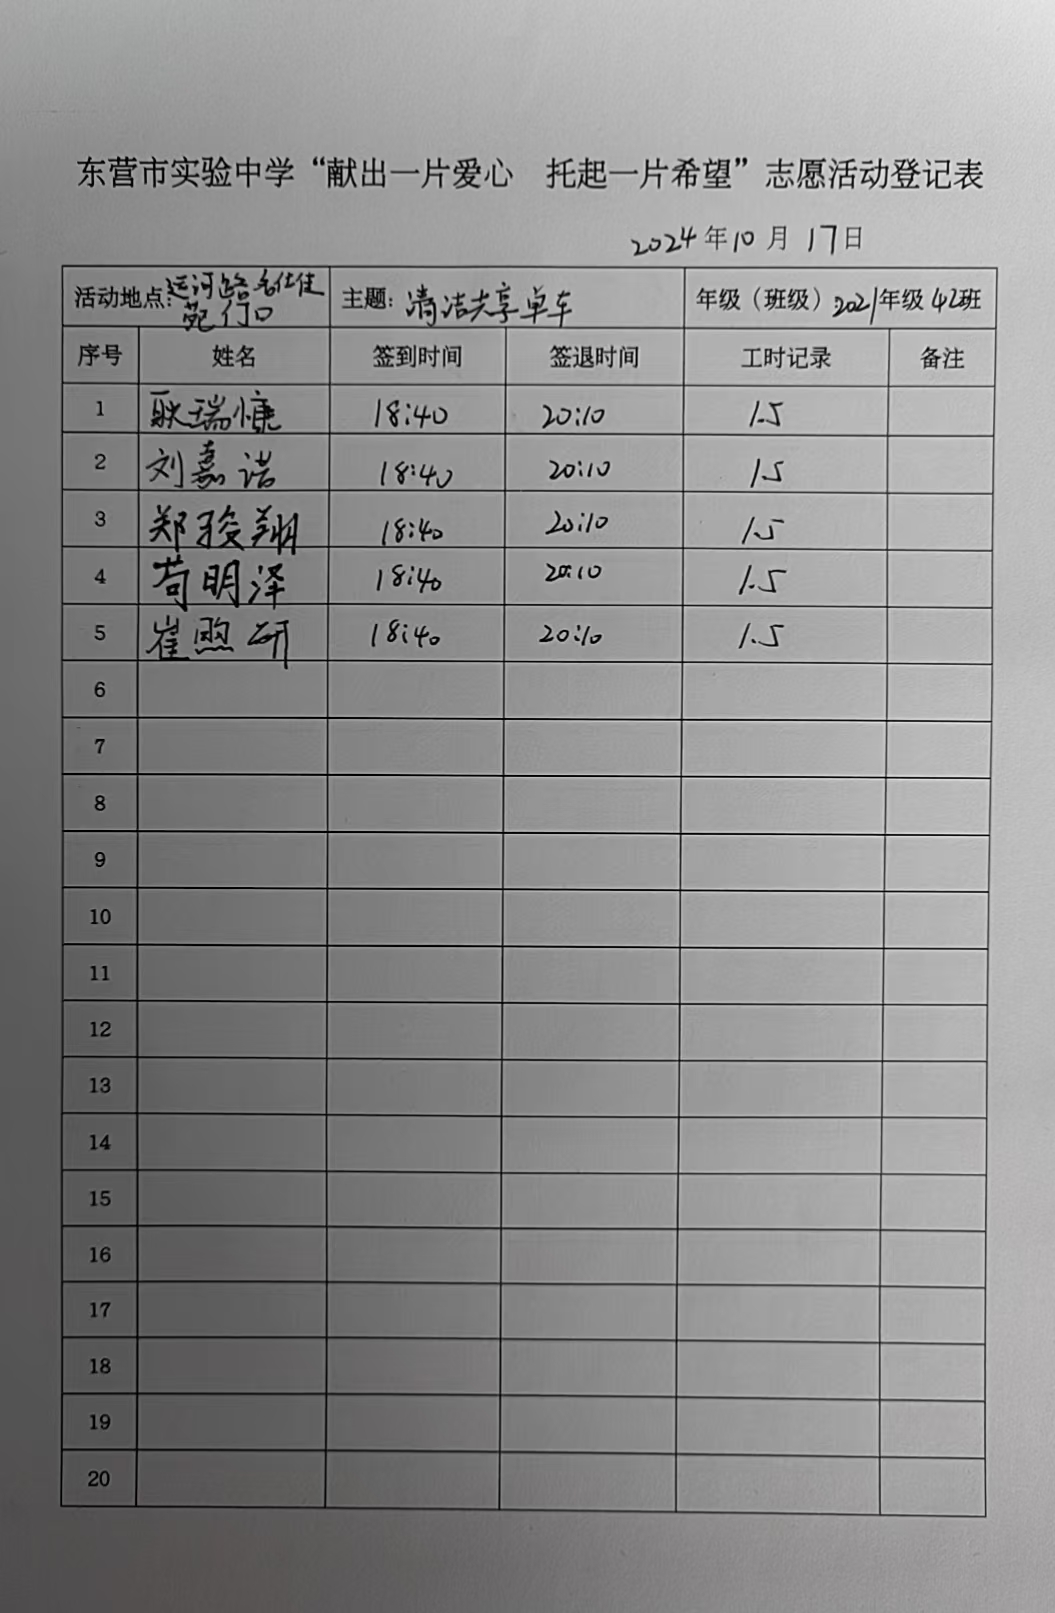 东营市实验中学“献出一片爱心 托起一片希望”志愿活动登记表
2024年10月17日
活动地点:运河路名仕佳苑门口 主题:清洁共享单车 年级（班级）:2021年级42班
序号 姓名 签到时间 签退时间 工时记录 备注
1 耿瑞慷 18:40 20:10 1.5
2 刘嘉诺 18:40 20:10 1.5
3 郑骏翔 18:40 20:10 1.5
4 苟明泽 18:40 20:10 1.5
5 崔煦研 18:40 20:10 1.5
6
7
8
9
10
11
12
13
14
15
16
17
18
19
20